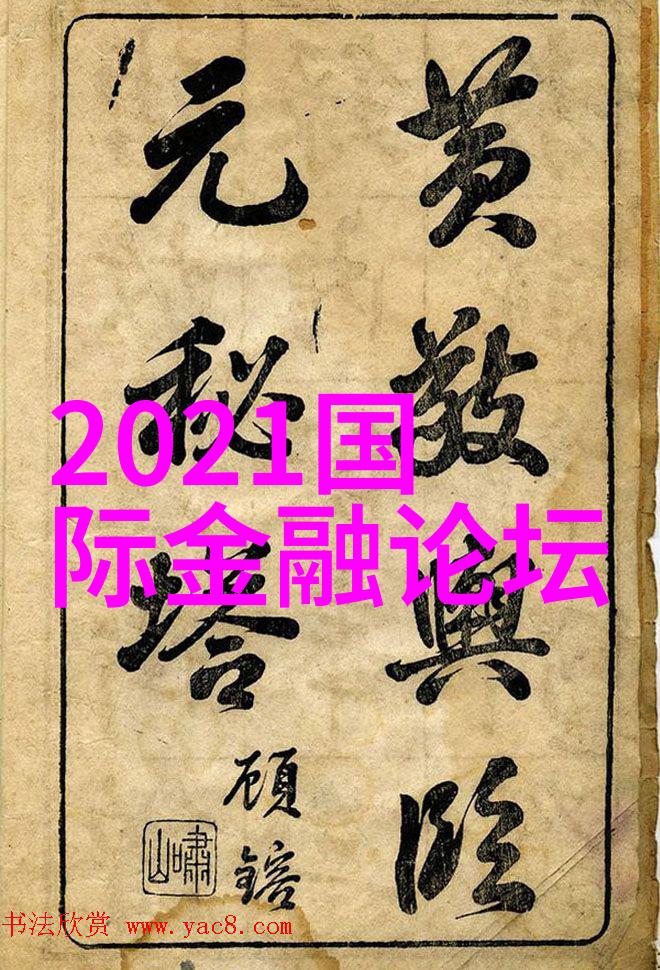 黄敬輿臨
元秘塔
顧鎔
嘯山
2021国
际金融论坛
书法欣赏 www.yac8.com